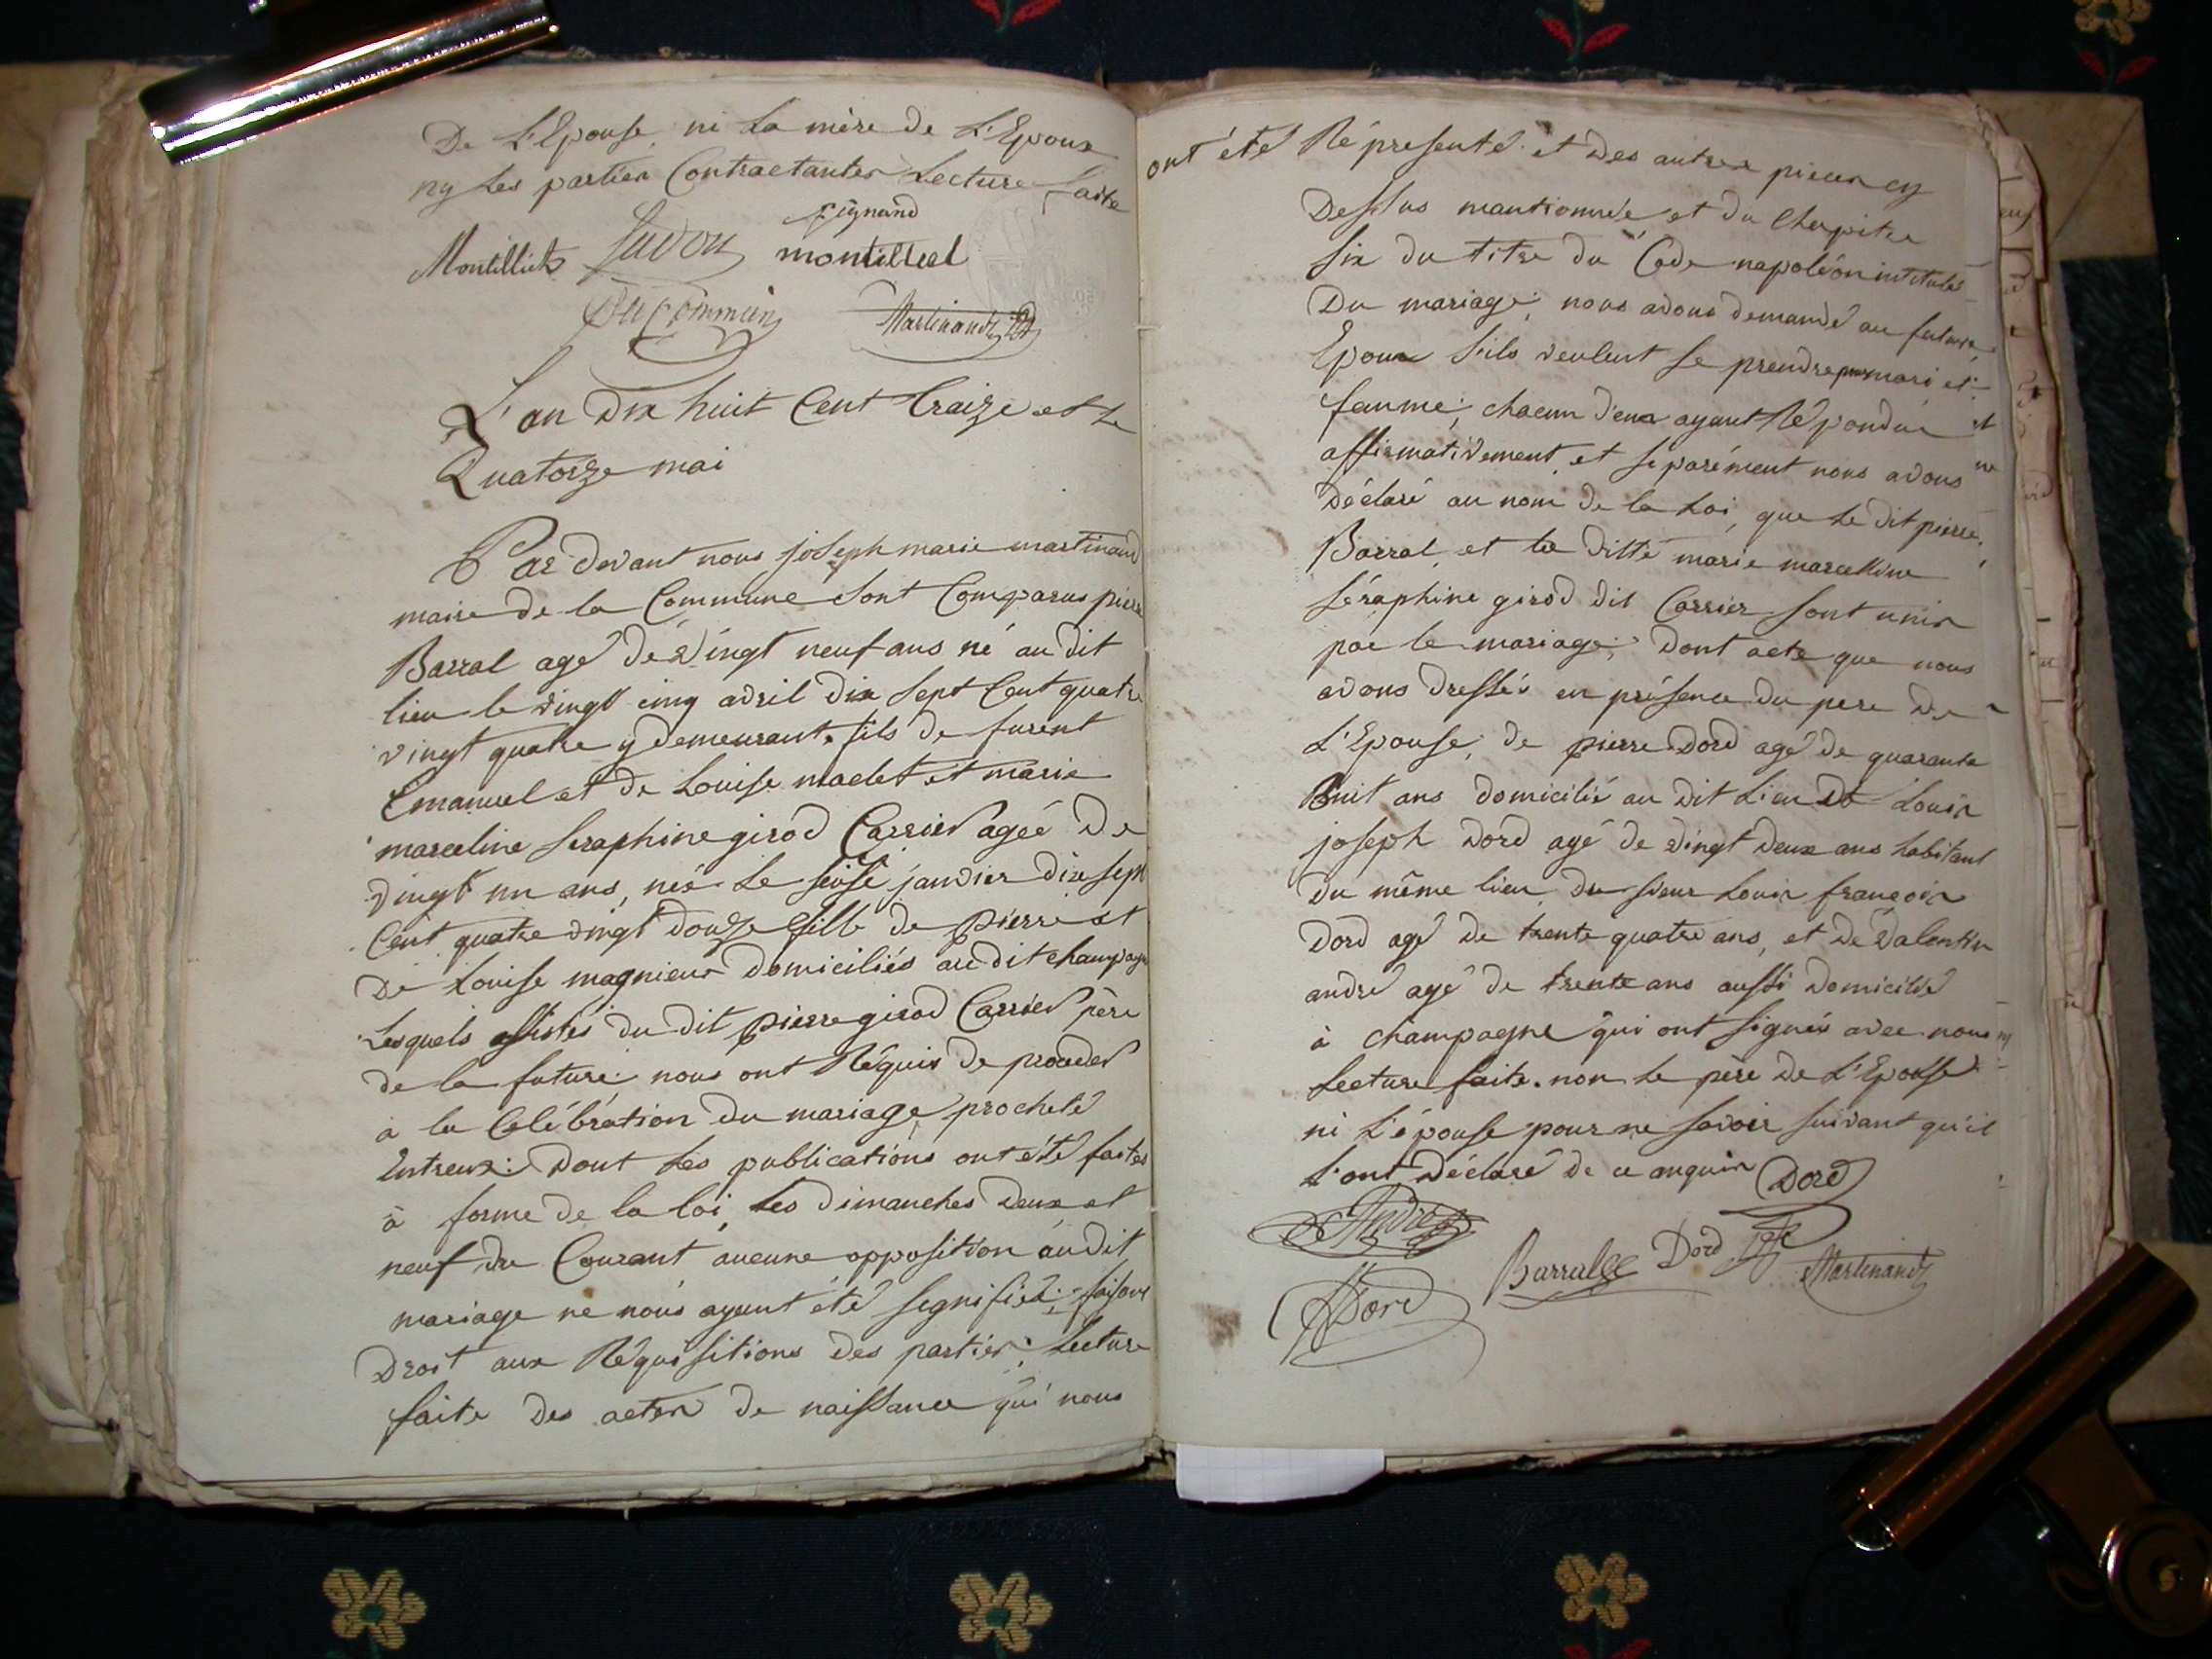 De L'Epouse, ni La mère de L'Epoux
ny Les partien Contractanter Lecture faite
signand
Montillict Juvon montilliet
Ducommun Martinand
L'an Dix huit Cent traize et Le
Quatorze mai
Par devant nous joseph marie martinand
maire de la Commune Sont Comparus pierre
Barral agé de Vingt neuf ans né au dit
lieu le vingt cinq avril dix Sept Cent quatre
vingt quatre y demeurant. fils de furent
Emanuel et de Louise maclet et marie
marceline Seraphine girod Carrier agéé de
vingt un ans, née Le seise janvier dix sept
Cent quatre vingt douze fille de pierre et
De Louise magnieur Domiciliés au dit champagne
Lesquels assistés du dit pierre girod Carrier père
de la future, nous ont Réquis de proceder
à la Celébration du mariage procheté
Entreux: Dont Les publications ont été faites
à forme de la loi, Les dimanches deux et
neuf du Courant aucune opposition audit
mariage ne nous ayant été segnifiée; faisant
Droit aux Réquisitions des partier; Lecture
faite des acter de naissance qui nous
ont été Réprésenté et des autres pieces cy
Dessus mantionnée et du Chapitre
Six du titre du Code napoléon intitulé
Du mariage; nous avons demandé au future
Epoux s'ils veulent se prendre pour mari et
famme; chacun d'eux ayant Répondu
affirmativement et séparément nous avons
Déclaré au nom de la Loi, que Le dit pierre
Barral, et la ditte marie marcelline
Séraphine girod dit Carrier sont unir
par le mariage; Dont acte que nous
avons dressés en présence du pere de
L'Epouse; de pierre Dord agé de quarante
huit ans domicilié au dit Lieu de Louis
joseph Dord agé de vingt deux ans habitant
du même lieu du sieur Louis françois
Dord agé de trente quatre ans, et de Valentin
andré agé de trente ans aussi Domicilié
à champagne qui ont signés avec nous
Lecture faite. non Le père de L'Epouse
ni L'épouse pour ne savoir suivant qu'il
L'ont Déclaré de ce anquin Dord
André
Barral Dord Martinand
Dord